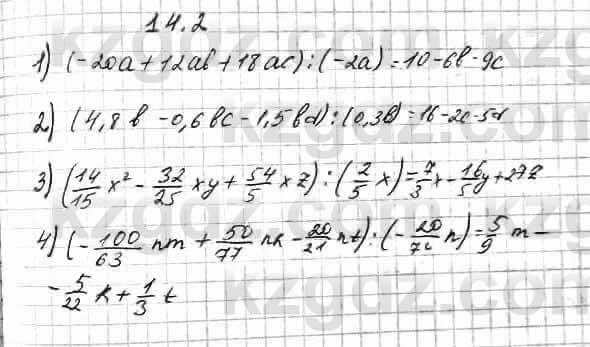 14.2
1) (-20a + 12ab + 18ac) : (-2a) = 10 - 6b - 9c
2) (4,8b - 0,6bc - 1,5bd) : (0,3b) = 16 - 2c - 5d
3) (14/15 x² - 32/25 xy + 54/5 xz) : (2/5 x) = 7/3 x - 16/5 y + 27z
4) (- 100/63 nm + 50/77 nk - 20/21 nt) : (- 20/7 n) = 5/9 m -
- 5/22 k + 1/3 t
kzgdz.com